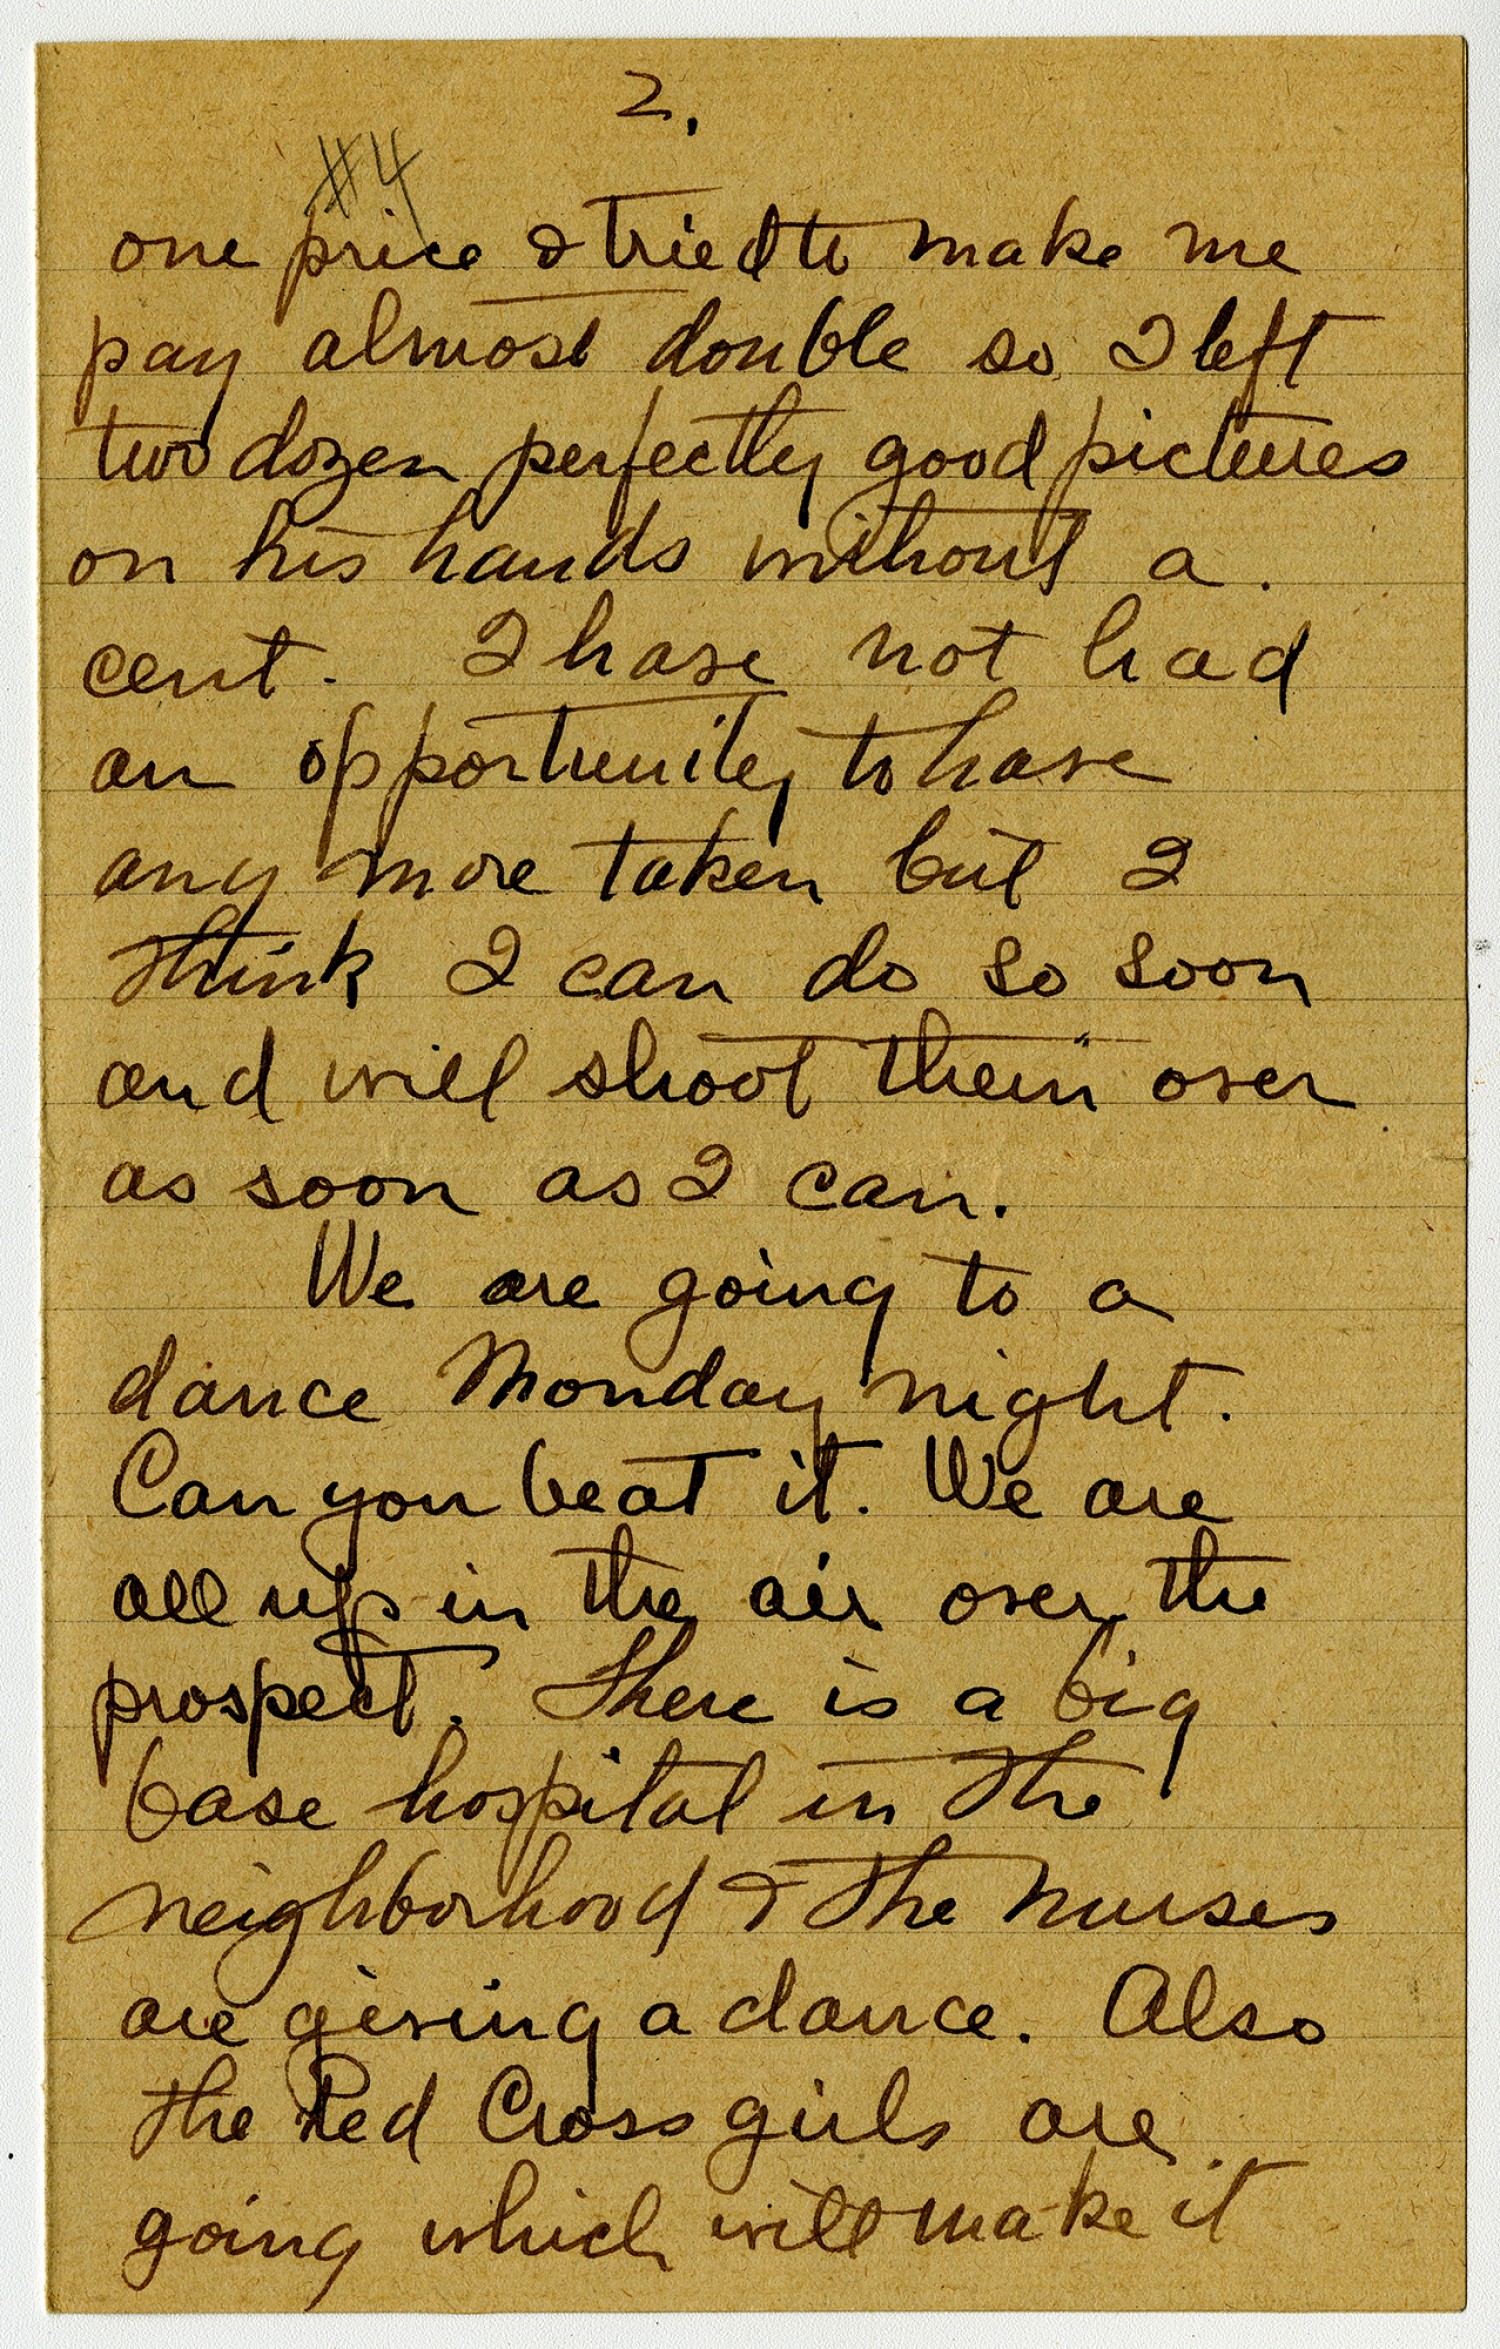 2.
#4
one price & tried to make me
pay almost double so I left
two dozen perfectly good pictures
on his hands without a
cent. I have not had
an opportunity to have
any more taken but I
think I can do so soon
and will shoot them over
as soon as I can.
We are going to a
dance Monday night.
Can you beat it. We are
all up in the air over the
prospect. There is a big
base hospital in the
neighborhood & the nurses
are giving a dance. Also
the Red Cross girls are
going which will make it